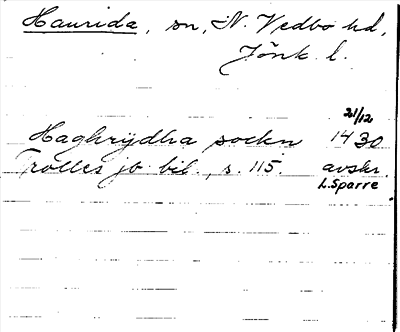 Haurida, sn, N. Vedbo hd,
Jönk. l.
21/12
Haghrydha sockn 1430
Trolles jb bil., s. 115. avskr.
L. Sparre